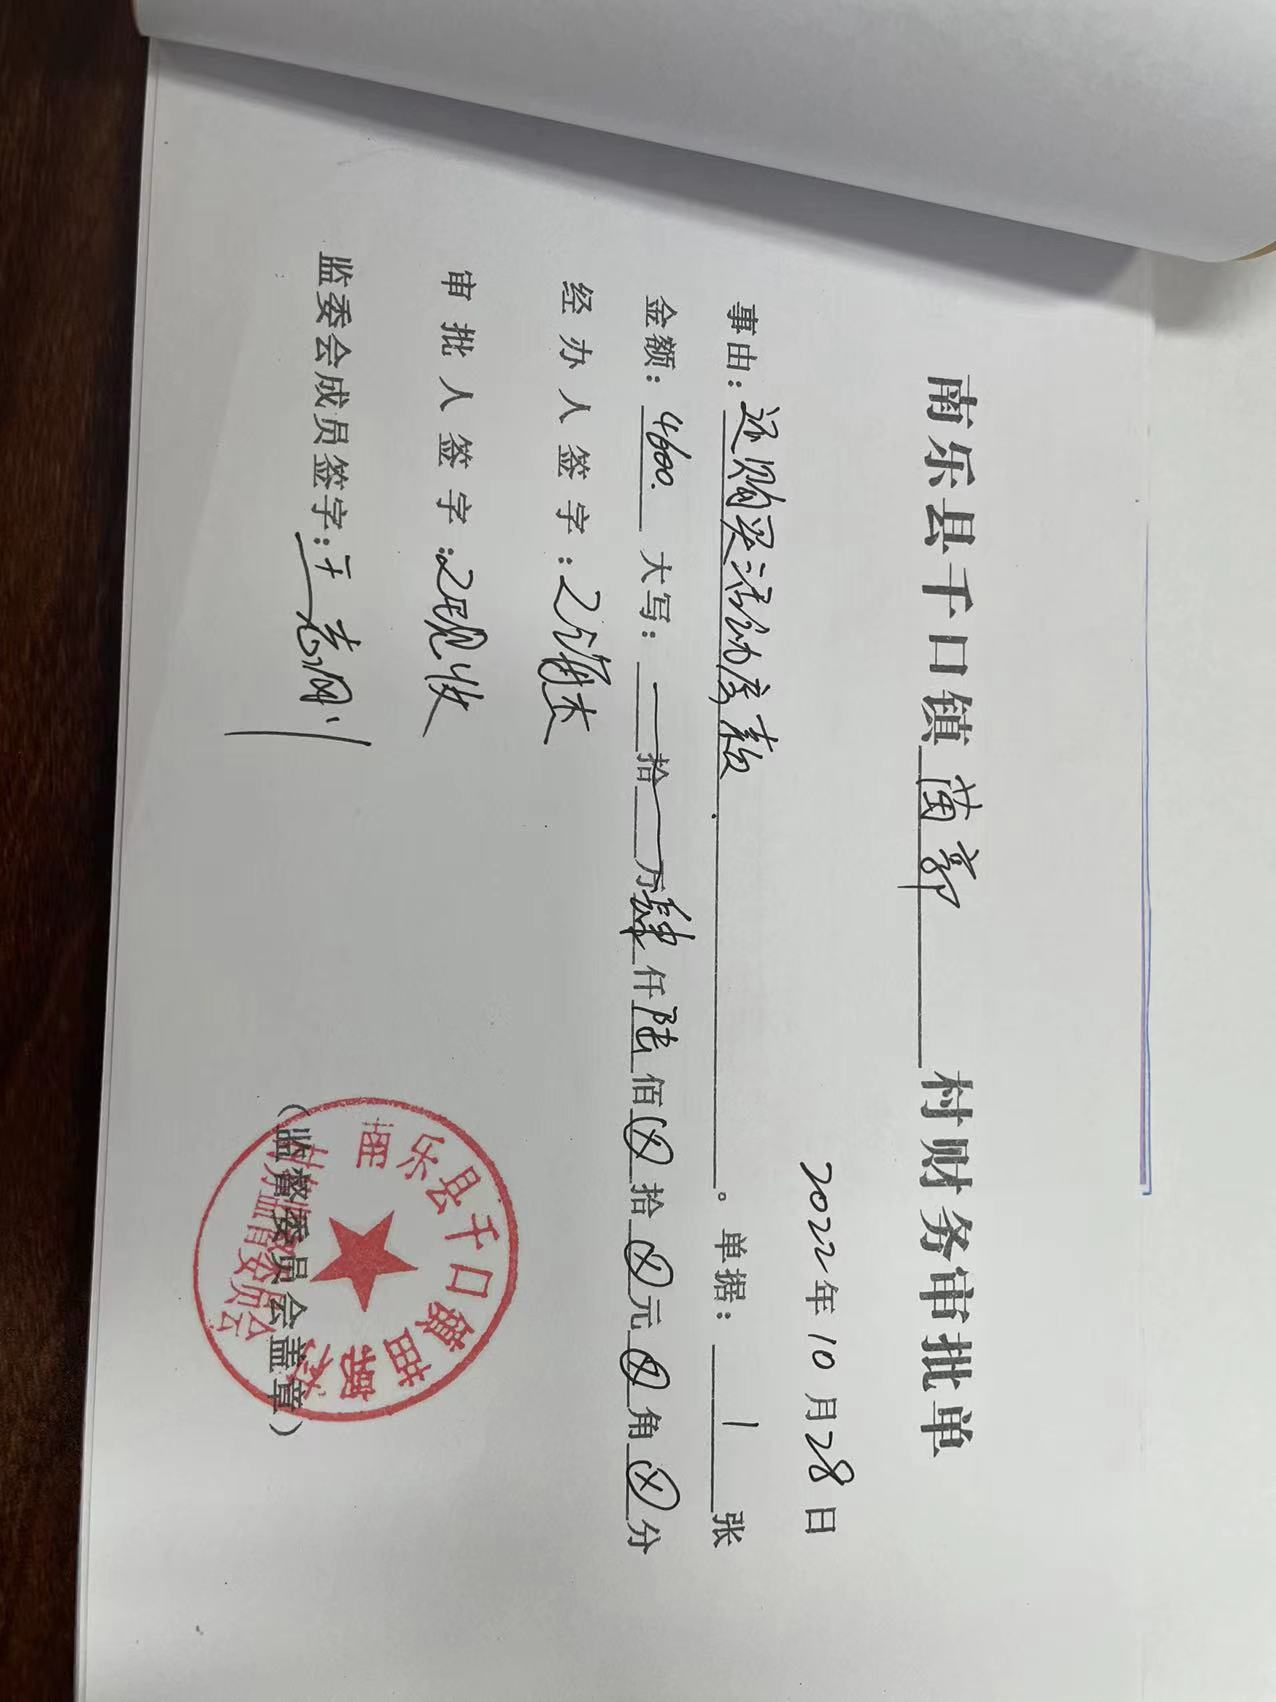 南乐县千口镇苗郭村财务审批单
2022年10月28日
事由：还购买活动房款。单据：1张
金额：4600. 大写：拾万肆仟陆佰⊗拾⊗元⊗角⊗分
经办人签字：
审批人签字：现收
监委会成员签字：王志刚
（监督委员会盖章）
南乐县千口镇苗郭村
村务监督委员会